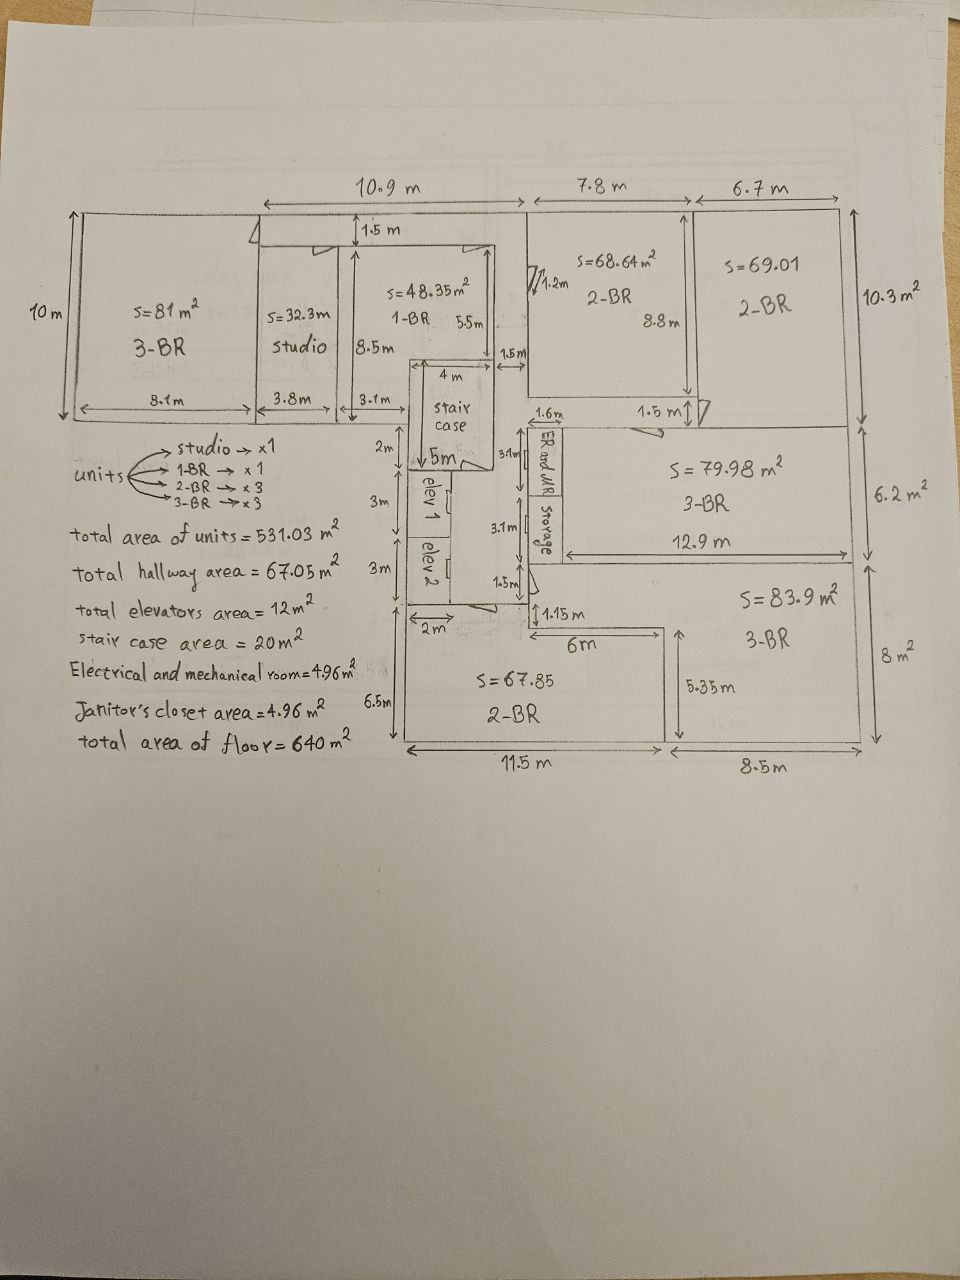 10.9 m
7.8 m
6.7 m
1.5 m
10 m
S=81 m²
3-BR
8.1m
S=32.3m
studio
3.8m
8.5m
3.1m
S=48.35m²
1-BR
5.5m
1.5m
1.2m
S=68.64m²
2-BR
8.8m
1.5m
S=69.01
2-BR
10.3 m²
4 m
stair
case
5m
2m
3m
elev 1
3m
elev 2
2m
1.6m
3.1m
ER and MR
3.1m
Storage
1.5m
1.15m
6m
S=79.98 m²
3-BR
12.9 m
6.2 m²
S=83.9 m²
3-BR
8 m²
5.35m
6.5m
S=67.85
2-BR
11.5 m
8.5m
units
studio → x1
1-BR → x 1
2-BR → x 3
3-BR → x 3
total area of units = 531.03 m²
total hallway area = 67.05 m²
total elevators area = 12 m²
stair case area = 20m²
Electrical and mechanical room=4.96m²
Janitor's closet area=4.96 m²
total area of floor= 640 m²